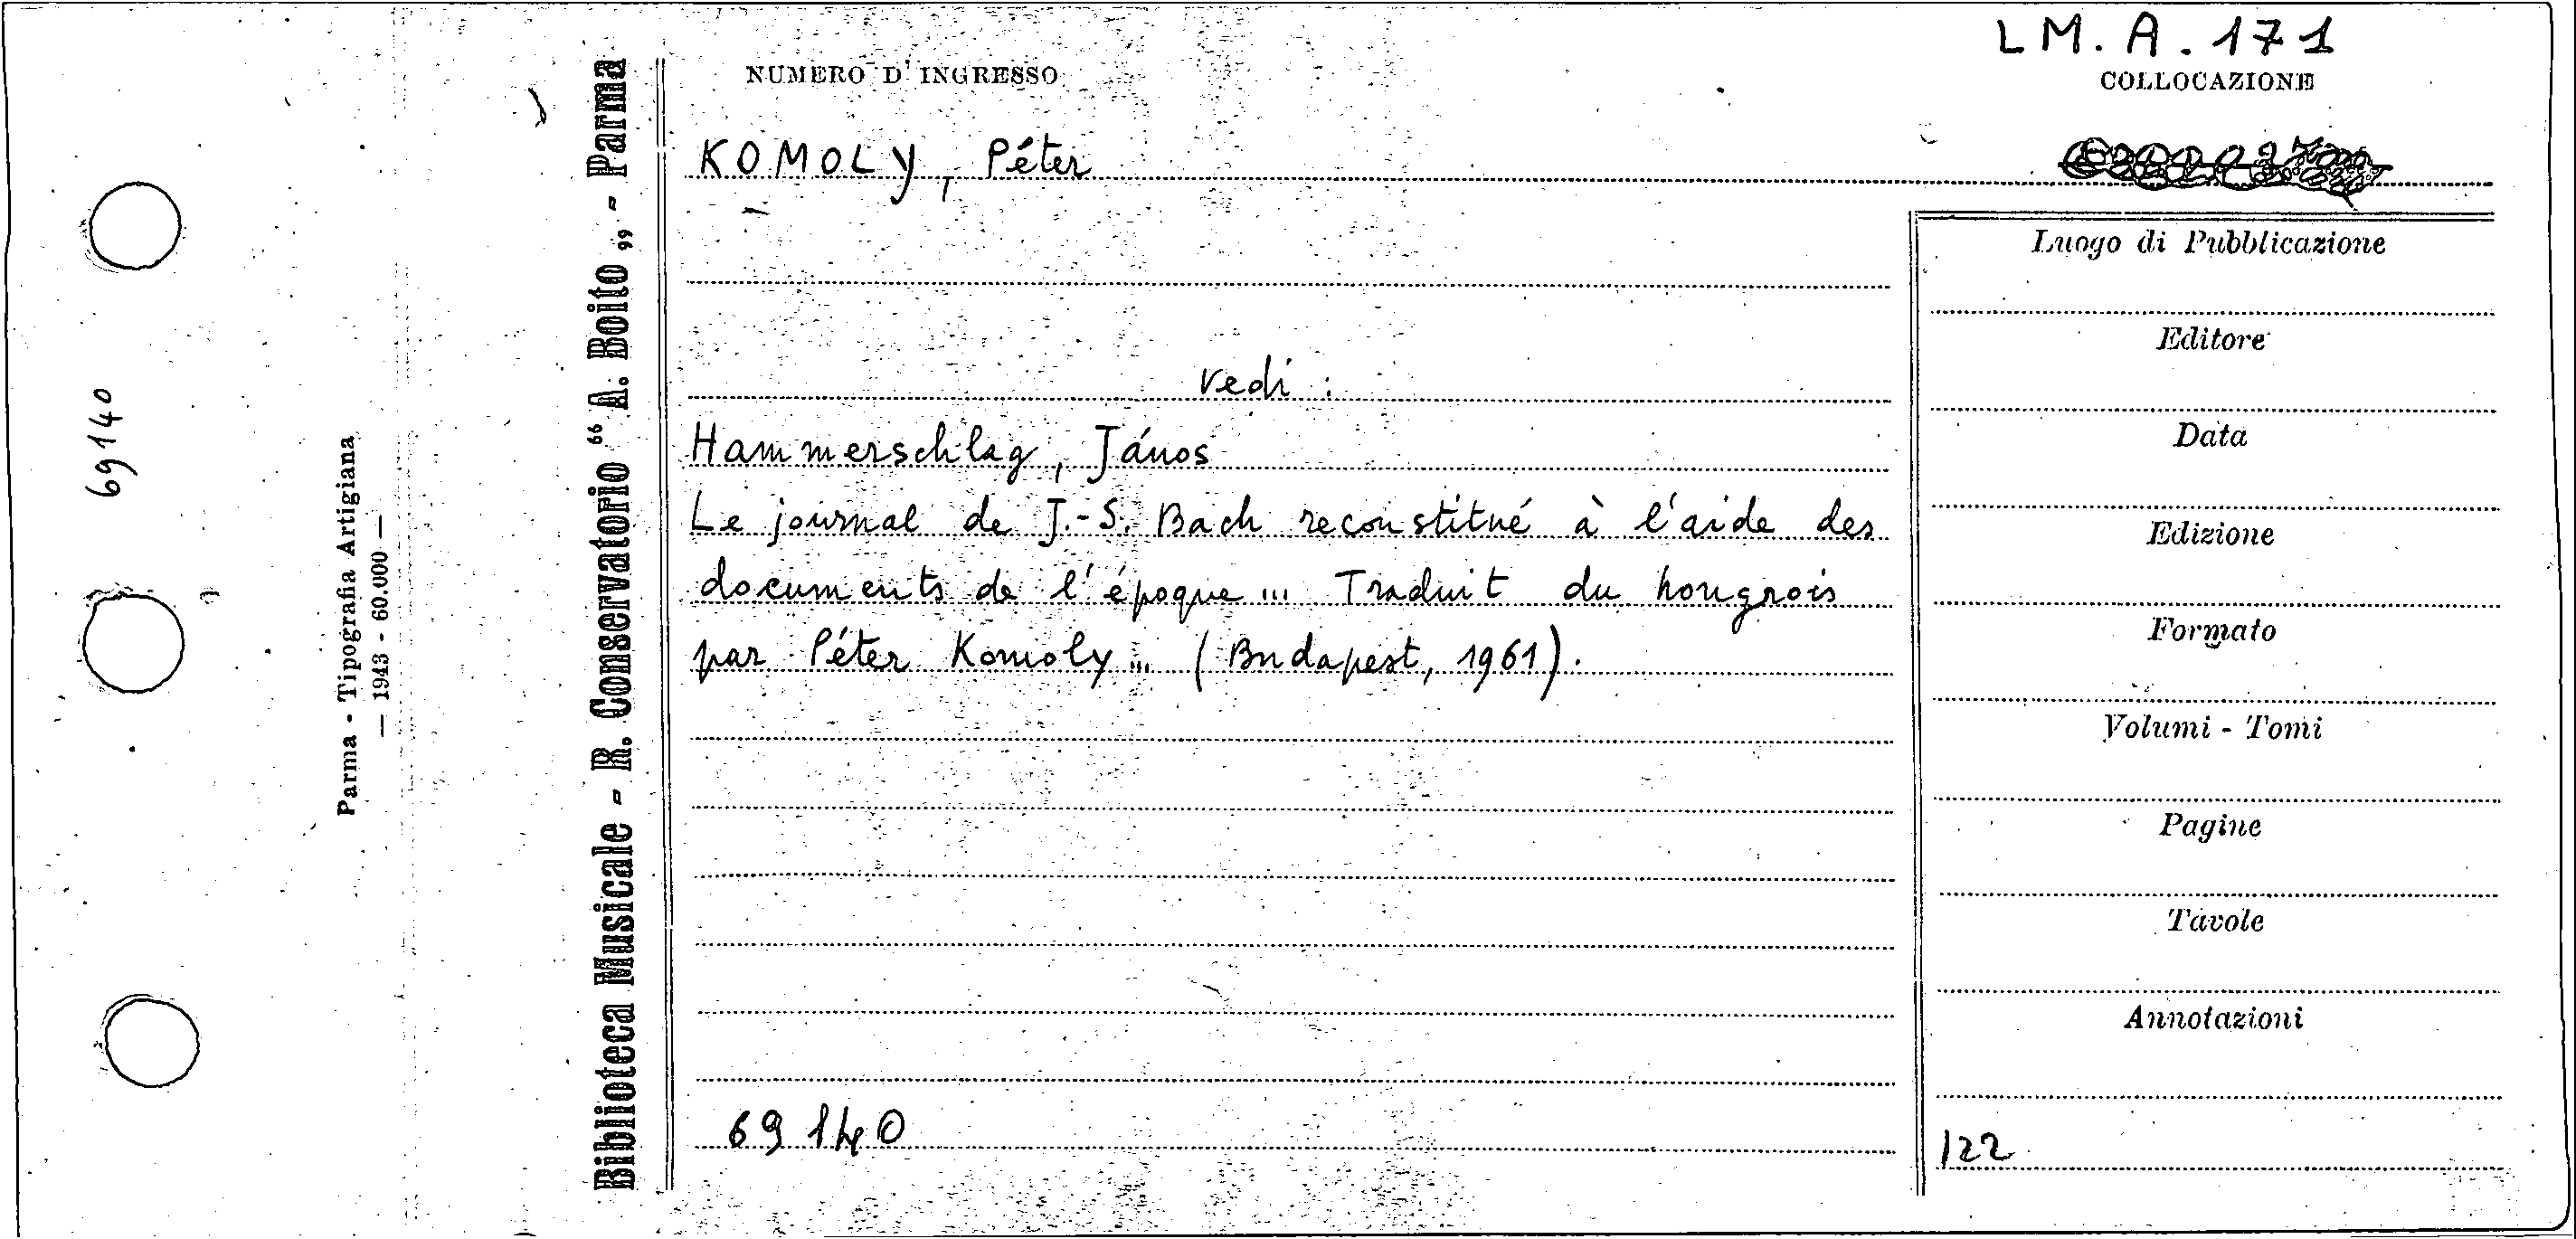 LM. A. 171
NUMERO D' INGRESSO
COLLOCAZIONE
KOMOLY, Péter
vedi:
Hammerschlag, János
Le journal de J.-S. Bach reconstitué à l'aide des
documents de l'époque... Traduit du hongrois
par Péter Komoly... (Budapest, 1961).
69140
Luogo di Pubblicazione
Editore
Data
Edizione
Formato
Volumi - Tomi
Pagine
Tavole
Annotazioni
122
Biblioteca Musicale - R. Conservatorio “ A. Boito „ - Parma
Parma - Tipografia Artigiana
— 1943 - 60.000 —
69140